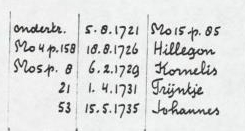 ondertr. 5.8.1721 Mo 15 p. 85
Mo 4 p. 158 18.8.1726 Hillegon
Mo 5 p. 8 6.2.1729 Kornelis
21 1.4.1731 Trijntje
53 15.5.1735 Johannes